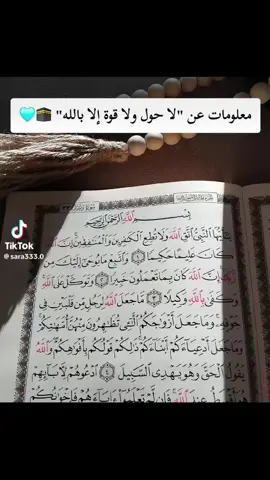 معلومات عن "لا حول ولا قوة إلا بالله" 🕋🩵
بِسْمِ اللَّهِ الرَّحْمَٰنِ الرَّحِيمِ
يَٰٓأَيُّهَا ٱلنَّبِىُّ ٱتَّقِ ٱللَّهَ وَلَا تُطِعِ ٱلْكَٰفِرِينَ وَٱلْمُنَٰفِقِينَ إِنَّ ٱللَّهَ
كَانَ عَلِيمًا حَكِيمًا ١ وَٱتَّبِعْ مَا يُوحَىٰٓ إِلَيْكَ مِن
رَّبِّكَ إِنَّ ٱللَّهَ كَانَ بِمَا تَعْمَلُونَ خَبِيرًا ٢ وَتَوَكَّلْ عَلَى ٱللَّهِ
وَكَفَىٰ بِٱللَّهِ وَكِيلًا ٣ مَّا جَعَلَ ٱللَّهُ لِرَجُلٍ مِّن قَلْبَيْنِ فِى
جَوْفِهِۦ وَمَا جَعَلَ أَزْوَٰجَكُمُ ٱلَّٰٓـِٔى تُظَٰهِرُونَ مِنْهُنَّ أُمَّهَٰتِكُمْ
وَمَا جَعَلَ أَدْعِيَآءَكُمْ أَبْنَآءَكُمْ ذَٰلِكُمْ قَوْلُكُم بِأَفْوَٰهِكُمْ وَٱللَّهُ
يَقُولُ ٱلْحَقَّ وَهُوَ يَهْدِى ٱلسَّبِيلَ ٤ ٱدْعُوهُمْ لِأَبَآئِهِمْ
هُوَ أَقْسَطُ عِندَ ٱللَّهِ فَإِن لَّمْ تَعْلَمُوٓا۟ ءَابَآءَهُمْ فَإِخْوَٰنُكُمْ
TikTok
@sara333.0